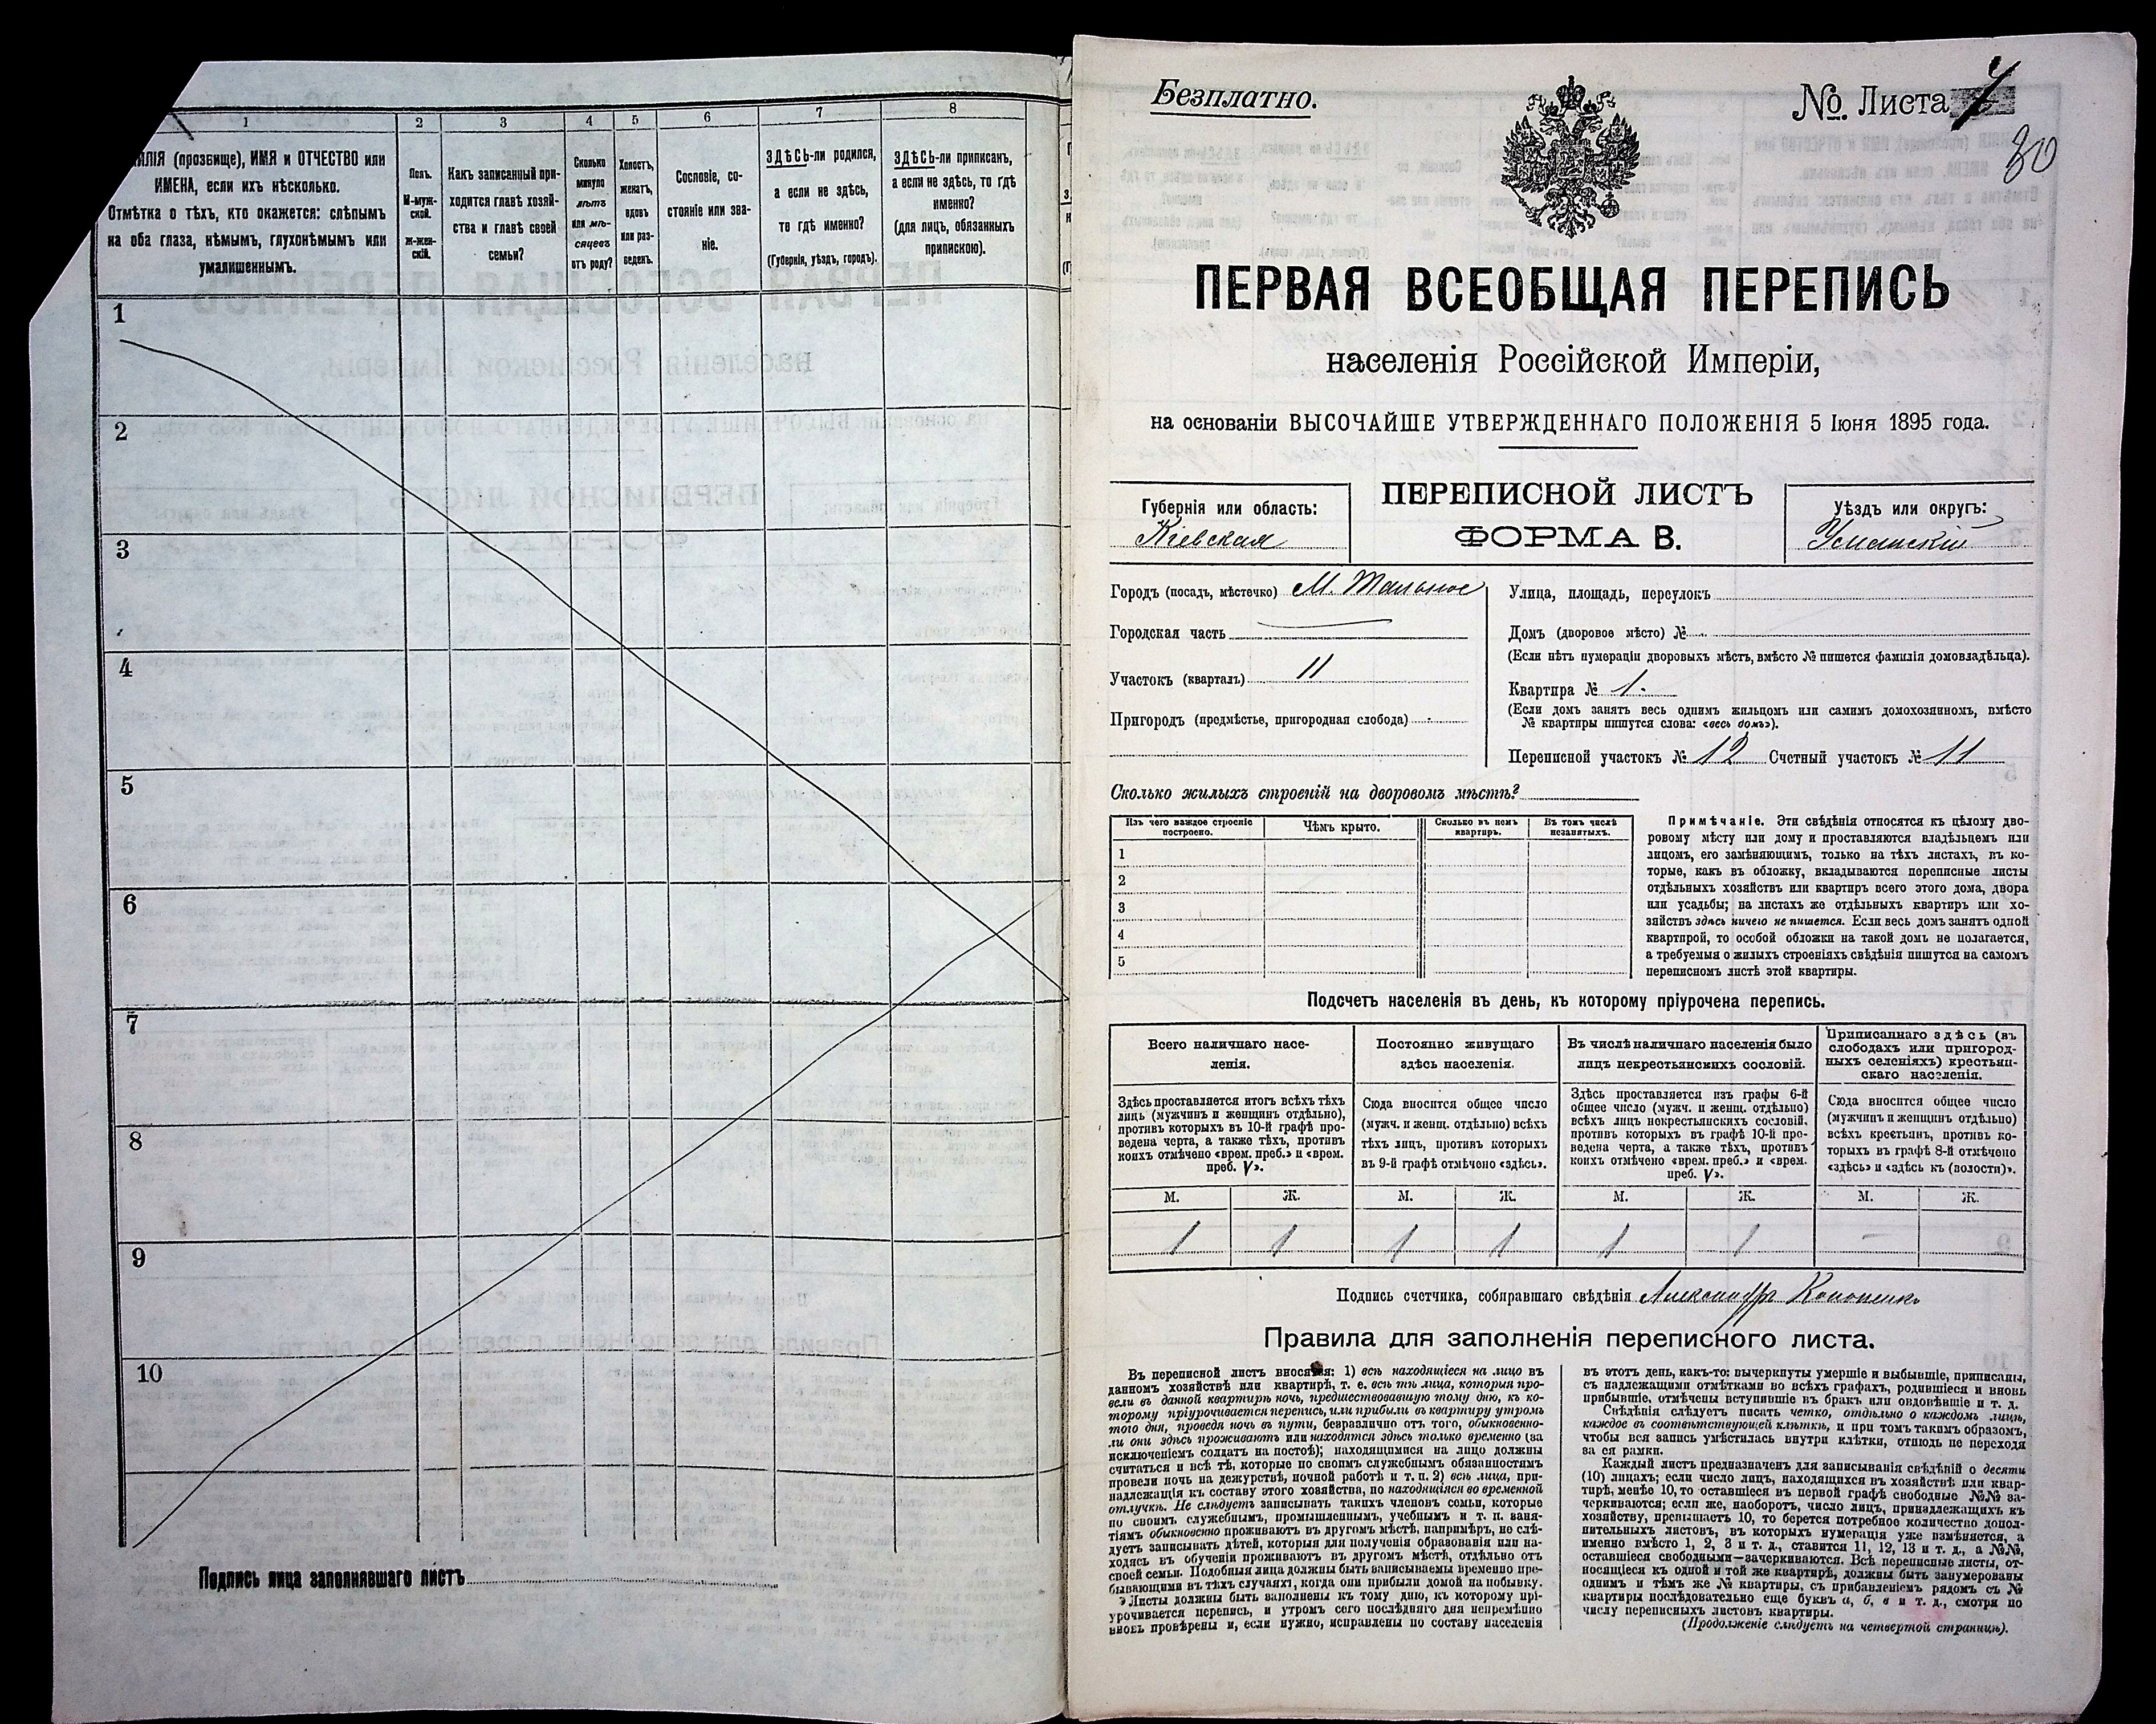 1 2 3 4 5 6 7 8
ИЛІЯ (прозбище), ИМЯ и ОТЧЕСТВО или
ИМЕНА, если ихъ нѣсколько.
Отмѣтка о тѣхъ, кто окажется: слѣпымъ
на оба глаза, нѣмымъ, глухонѣмымъ или
умалишеннымъ.
Полъ.
М-муж-
ской.
ж-жен-
скій.
Какъ записанный при-
ходится главѣ хозяй-
ства и главѣ своей
семьи?
Сколько
минуло
лѣтъ
или мѣ-
сяцевъ
отъ роду?
Холостъ,
женатъ,
вдовъ
или раз-
веденъ.
Сословіе, со-
стояніе или зва-
ніе.
ЗДѢСЬ-ли родился,
а если не здѣсь,
то гдѣ именно?
(Губернія, уѣздъ, городъ).
ЗДѢСЬ-ли приписанъ,
а если не здѣсь, то гдѣ
именно?
(для лицъ, обязанныхъ
припискою).
1
2
3
4
5
6
7
8
9
10
Подпись лица заполнявшаго листъ
Безплатно.
№. Листа
80
ПЕРВАЯ ВСЕОБЩАЯ ПЕРЕПИСЬ
населенія Россійской Имперіи,
на основаніи ВЫСОЧАЙШЕ УТВЕРЖДЕННАГО ПОЛОЖЕНІЯ 5 Іюня 1895 года.
Губернія или область:
Кіевская
ПЕРЕПИСНОЙ ЛИСТЪ
ФОРМА В.
Уѣздъ или округъ:
Уманскій
Городъ (посадъ, мѣстечко) М. Тальное
Городская часть
Участокъ (кварталъ) 11
Пригородъ (предмѣстье, пригородная слобода)
Улица, площадь, переулокъ
Домъ (дворовое мѣсто) №
(Если нѣтъ нумераціи дворовыхъ мѣстъ, вмѣсто № пишется фамилія домовладѣльца).
Квартира № 1.
(Если домъ занятъ весь однимъ жильцомъ или самимъ домохозяиномъ, вмѣсто
№ квартиры пишутся слова: «весь домъ»).
Переписной участокъ № 12 Счетный участокъ № 11
Сколько жилыхъ строеній на дворовомъ мѣстѣ?
Изъ чего каждое строеніе
построено.
Чѣмъ крыто.
Сколько въ немъ
квартиръ.
Въ томъ числѣ
незанятыхъ.
1
2
3
4
5
Примѣчаніе. Эти свѣдѣнія относятся къ цѣлому дво-
ровому мѣсту или дому и проставляются владѣльцемъ или
лицомъ, его замѣняющимъ, только на тѣхъ листахъ, въ ко-
торые, какъ въ обложку, вкладываются переписные листы
отдѣльныхъ хозяйствъ или квартиръ всего этого дома, двора
или усадьбы; на листахъ же отдѣльныхъ квартиръ или хо-
зяйствъ здѣсь ничего не пишется. Если весь домъ занятъ одной
квартирой, то особой обложки на такой домъ не полагается,
а требуемыя о жилыхъ строеніяхъ свѣдѣнія пишутся на самомъ
переписномъ листѣ этой квартиры.
Подсчетъ населенія въ день, къ которому пріурочена перепись.
Всего наличнаго насе-
ленія.
Здѣсь проставляется итогъ всѣхъ тѣхъ
лицъ (мужчинъ и женщинъ отдѣльно),
противъ которыхъ въ 10-й графѣ про-
ведена черта, а также тѣхъ, противъ
коихъ отмѣчено «врем. преб.» и «врем.
преб. V».
Постоянно живущаго
здѣсь населенія.
Сюда вносится общее число
(мужч. и женщ. отдѣльно) всѣхъ
тѣхъ лицъ, противъ которыхъ
въ 9-й графѣ отмѣчено «здѣсь».
Въ числѣ наличнаго населенія было
лицъ некрестьянскихъ сословій.
Здѣсь проставляется изъ графы 6-й
общее число (мужч. и женщ. отдѣльно)
всѣхъ лицъ некрестьянскихъ сословій,
противъ которыхъ въ графѣ 10-й про-
ведена черта, а также тѣхъ, противъ
коихъ отмѣчено «врем. преб.» и «врем.
преб. V».
Приписаннаго здѣсь (въ
слободахъ или пригород-
ныхъ селеніяхъ) крестьян-
скаго населенія.
Сюда вносится общее число
(мужчинъ и женщинъ отдѣльно)
всѣхъ крестьянъ, противъ ко-
торыхъ въ графѣ 8-й отмѣчено
«здѣсь» и «здѣсь къ (волости)».
М. Ж. М. Ж. М. Ж. М. Ж.
1 1 1 1 1 1 —
Подпись счетчика, собиравшаго свѣдѣнія Александръ Кононенко
Правила для заполненія переписного листа.
Въ переписной листъ вносятся: 1) всѣ находящіеся на лицо въ
данномъ хозяйствѣ или квартирѣ, т. е. всѣ тѣ лица, которыя про-
вели въ данной квартирѣ ночь, предшествовавшую тому дню, къ ко-
торому пріурочивается перепись, или прибыли въ квартиру утромъ
того дня, проведя ночь въ пути, безразлично отъ того, обыкновенно-
ли они здѣсь проживаютъ или находятся здѣсь только временно (за
исключеніемъ солдатъ на постоѣ); находящимися на лицо должны
считаться и всѣ тѣ, которые по своимъ служебнымъ обязанностямъ
провели ночь на дежурствѣ, ночной работѣ и т. п. 2) всѣ лица, при-
надлежащія къ составу этого хозяйства, но находящіяся во временной
отлучкѣ. Не слѣдуетъ записывать такихъ членовъ семьи, которые
по своимъ служебнымъ, промышленнымъ, учебнымъ и т. п. заня-
тіямъ обыкновенно проживаютъ въ другомъ мѣстѣ, напримѣръ, не слѣ-
дуетъ записывать дѣтей, которыя для полученія образованія или на-
ходясь въ обученіи проживаютъ въ другомъ мѣстѣ, отдѣльно отъ
своей семьи. Подобныя лица должны быть записываемы временно пре-
бывающими въ тѣхъ случаяхъ, когда они прибыли домой на побывку.
Листы должны быть заполнены къ тому дню, къ которому прі-
урочивается перепись, и утромъ сего послѣдняго дня непремѣнно
вновь провѣрены и, если нужно, исправлены по составу населенія
въ этотъ день, какъ-то: вычеркнуты умершіе и выбывшіе, приписаны,
съ надлежащими отмѣтками во всѣхъ графахъ, родившіеся и вновь
прибывшіе, отмѣчены вступившіе въ бракъ или овдовѣвшіе и т. д.
Свѣдѣнія слѣдуетъ писать четко, отдѣльно о каждомъ лицѣ,
каждое въ соотвѣтствующей клѣткѣ, и при томъ такимъ образомъ,
чтобы вся запись умѣстилась внутри клѣтки, отнюдь не переходя
за ея рамки.
Каждый листъ предназначенъ для записыванія свѣдѣній о десяти
(10) лицахъ; если число лицъ, находящихся въ хозяйствѣ или квар-
тирѣ, менѣе 10, то оставшіеся въ первой графѣ свободные №№ за-
черкиваются; если же, наоборотъ, число лицъ, принадлежащихъ къ
хозяйству, превышаетъ 10, то берется потребное количество допол-
нительныхъ листовъ, въ которыхъ нумерація уже измѣняется, а
именно вмѣсто 1, 2, 3 и т. д., ставится 11, 12, 13 и т. д., а №№,
оставшіеся свободными—зачеркиваются. Всѣ переписные листы, от-
носящіеся къ одной и той же квартирѣ, должны быть занумерованы
однимъ и тѣмъ же № квартиры, съ прибавленіемъ рядомъ съ №
квартиры послѣдовательно еще буквъ а, б, в и т. д., смотря по
числу переписныхъ листовъ квартиры.
(Продолженіе слѣдуетъ на четвертой страницѣ).